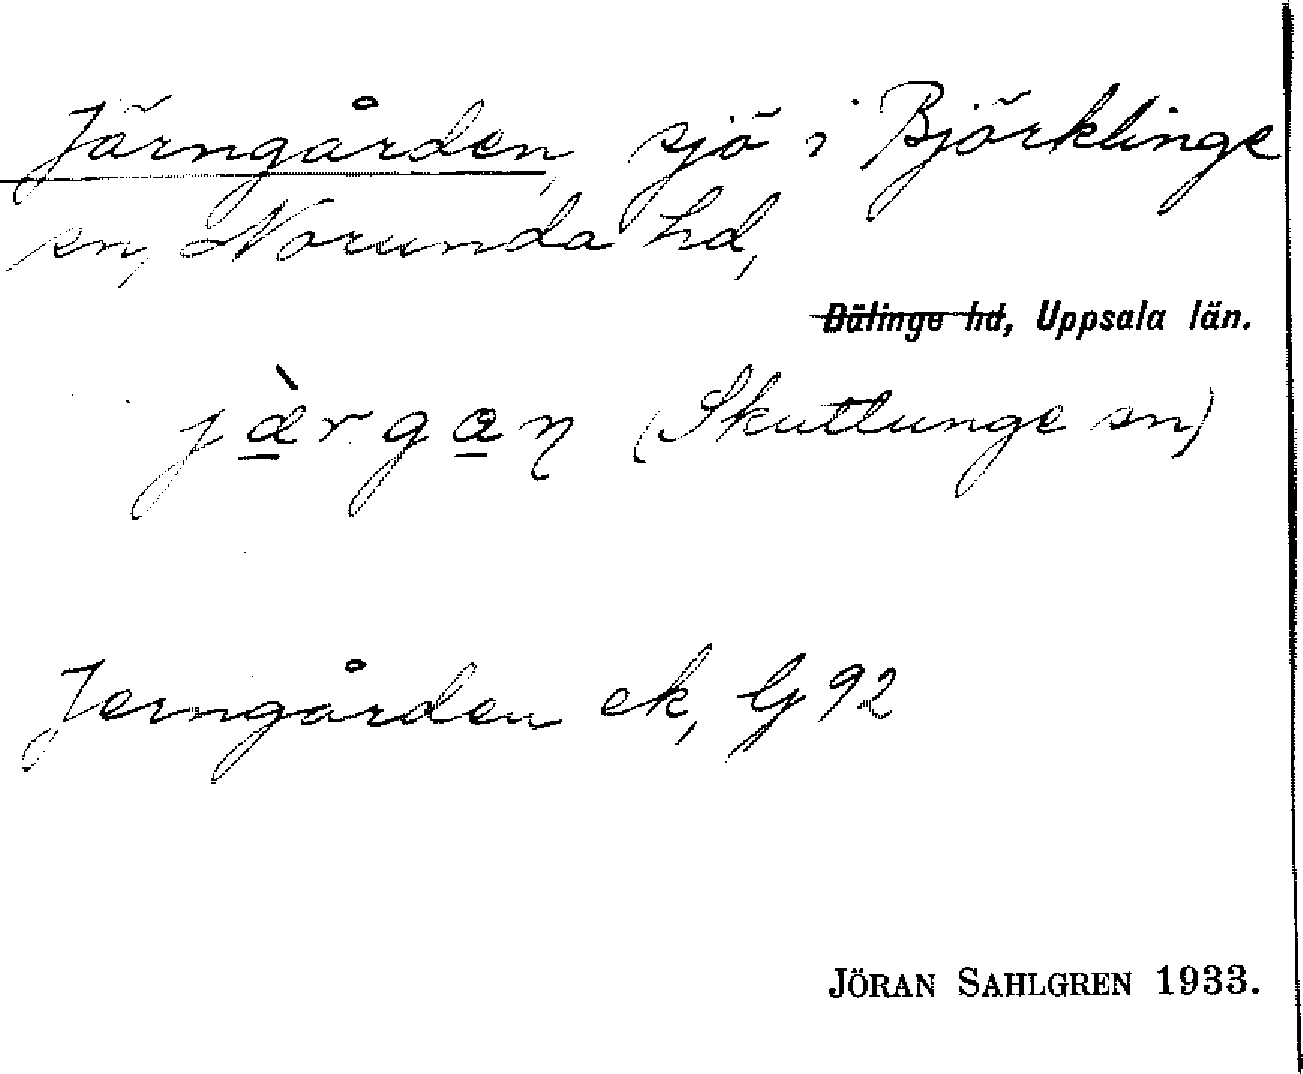 Järngården, sjö i Björklinge
sn, Norunda hd,
Bälinge hd, Uppsala län.
jæ̀rgan (Skuttunge sn)
Jerngården ek, G 92
JÖRAN SAHLGREN 1933.